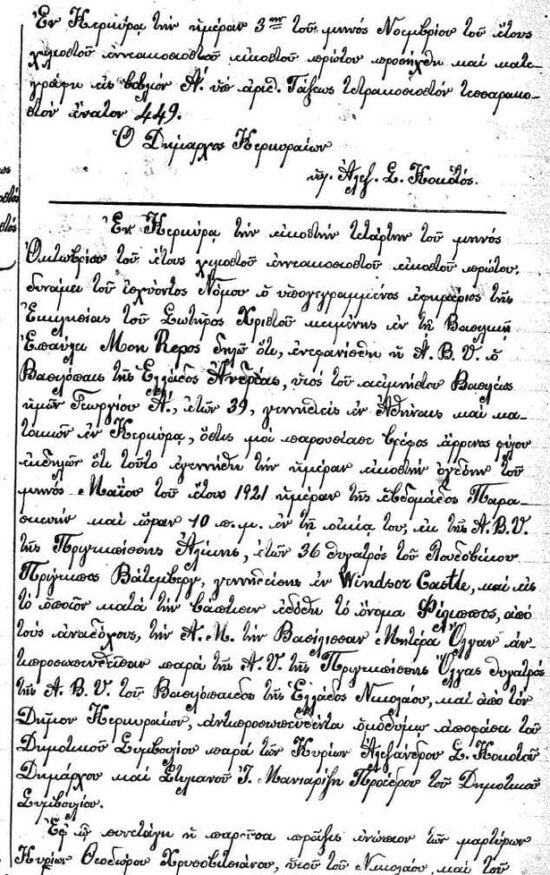 Ἐν Κερκύρᾳ τὴν ἡμέραν 3ην τοῦ μηνὸς Νοεμβρίου τοῦ ἔτους
χιλιοστοῦ ἐννεακοσιοστοῦ εἰκοστοῦ πρώτου προσήχθη καὶ κατε-
γράφη εἰς βιβλίον Α΄. ὑπὸ ἀριθ. τάξεως τετρακοσιοστὸν τεσσαρακο-
στὸν ἔνατον 449.
Ὁ Δήμαρχος Κερκυραίων
ὑπ. Ἀλεξ. Σ. Κοκοτός.
Ἐν Κερκύρᾳ τὴν εἰκοστὴν τετάρτην τοῦ μηνὸς
Ὀκτωβρίου τοῦ ἔτους χιλιοστοῦ ἐννεακοσιοστοῦ εἰκοστοῦ πρώτου.
δυνάμει τοῦ ἰσχύοντος Νόμου ὁ ὑπογεγραμμένος ἐφημέριος τῆς
Ἐκκλησίας τοῦ Σωτῆρος Χριστοῦ κειμένης ἐν τῇ Βασιλικῇ
Ἐπαύλει Mon Repos δηλῶ ὅτι, ἐνεφανίσθη ἡ Α.Β.Υ. ὁ
Βασιλόπαις τῆς Ἑλλάδος Ἀνδρέας, υἱὸς τοῦ ἀειμνήστου Βασιλέως
ἡμῶν Γεωργίου Α΄., ἐτῶν 39, γεννηθεὶς ἐν Ἀθήναις καὶ κα-
τοικῶν ἐν Κερκύρᾳ, ὅστις μοὶ παρουσίασε βρέφος ἄρρενος φύλου
ἐκδηλῶν ὅτι τοῦτο ἐγεννήθη τὴν ἡμέραν εἰκοστὴν ὀγδόην τοῦ
μηνὸς Μαΐου τοῦ ἔτους 1921 ἡμέραν τῆς ἑβδομάδος Παρα-
σκευὴν καὶ ὥραν 10 π.μ. ἐν τῇ οἰκίᾳ του, ἐκ τῆς Α.Β.Υ.
τῆς Πριγκιπίσσης Ἀλίκης, ἐτῶν 36 θυγατρὸς τοῦ Λουδοβίκου
Πρίγκιπος Βάτεμβεργ, γεννηθείσης ἐν Windsor Castle, καὶ εἰς
τὸ ὁποῖον κατὰ τὴν βάπτισιν ἐδόθη τὸ ὄνομα Φίλιππος, ἀπὸ
τοὺς ἀναδόχους, τὴν Α.Μ. τὴν Βασίλισσαν Μητέρα Ὄλγαν ἀν-
τιπροσωπευθεῖσαν παρὰ τῆς Α.Υ. τῆς Πριγκιπίσσης Ὄλγας θυγατρὸς
τῆς Α.Β.Υ. τοῦ Βασιλόπαιδος τῆς Ἑλλάδος Νικολάου, καὶ ἀπὸ τὸν
Δῆμον Κερκυραίων, ἀντιπροσωπευθέντα ὁμοθύμῳ ἀποφάσει τοῦ
Δημοτικοῦ Συμβουλίου παρὰ τῶν Κυρίων Ἀλεξάνδρου Σ. Κοκοτοῦ
Δημάρχου καὶ Στυλιανοῦ Ἰ. Μανιαρίζη Προέδρου τοῦ Δημοτικοῦ
Συμβουλίου.
Ἐφ' ᾧ συνετάγη ἡ παροῦσα πρᾶξις ἐνώπιον τῶν μαρτύρων
Κυρίων Θεοδώρου υἱοῦ τοῦ Νικολάου, καὶ τοῦ